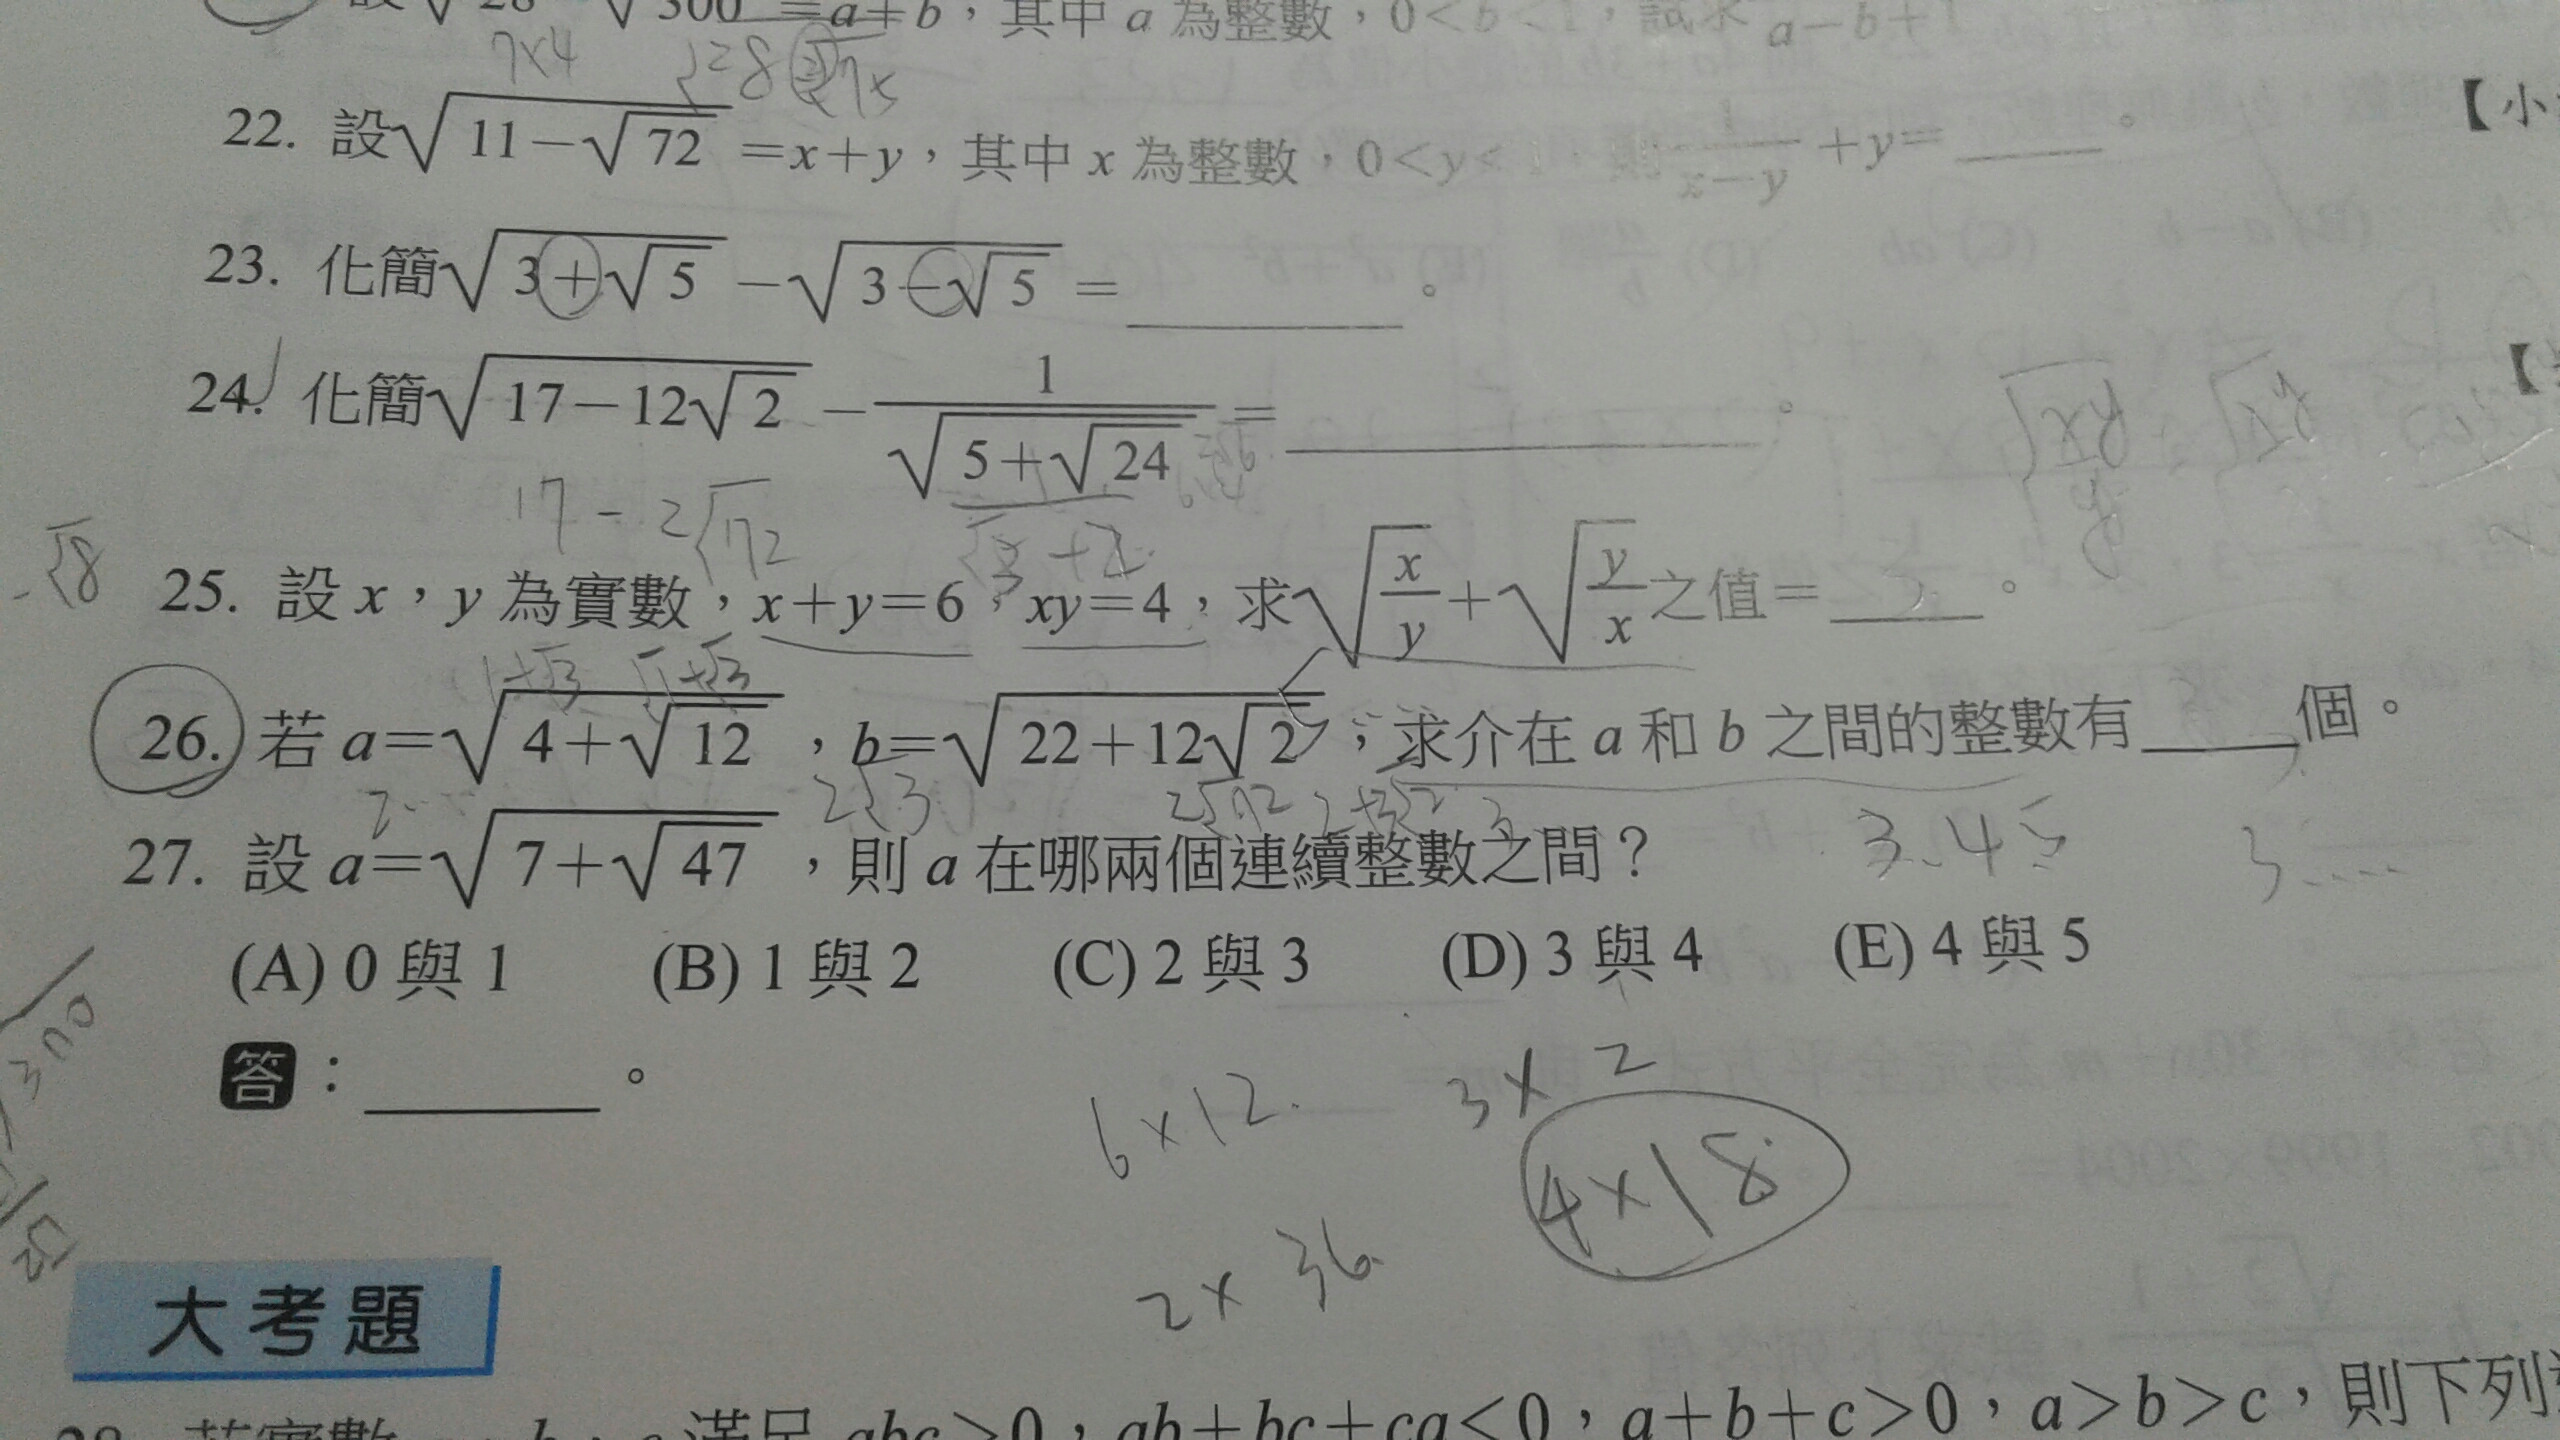 √28 √300 =a+b，其中 a 為整數，0<b<1，試求 a−b+1
7×4
22. 設√(11−√72) =x+y，其中 x 為整數，0<y<1，則 1/(x−y) +y= ______。
【小
23. 化簡√(3+√5) −√(3−√5) = ______。
24. 化簡√(17−12√2) − 1/√(5+√24) = ______。
17 − 2√72
√8
25. 設 x，y 為實數，x+y=6，xy=4，求√(x/y)+√(y/x)之值= 3 。
1+√3 √1+√3
26. 若 a=√(4+√12)，b=√(22+12√2)，求介在 a 和 b 之間的整數有____個。
2√3 2√72 2+3√2
3. 4 5
27. 設 a=√(7+√47)，則 a 在哪兩個連續整數之間？
(A) 0 與 1 (B) 1 與 2 (C) 2 與 3 (D) 3 與 4 (E) 4 與 5
答：______。
300
6×12. 3×2
4×18
2×36
大考題
滿足 abc>0，ab+bc+ca<0，a+b+c>0，a>b>c，則下列